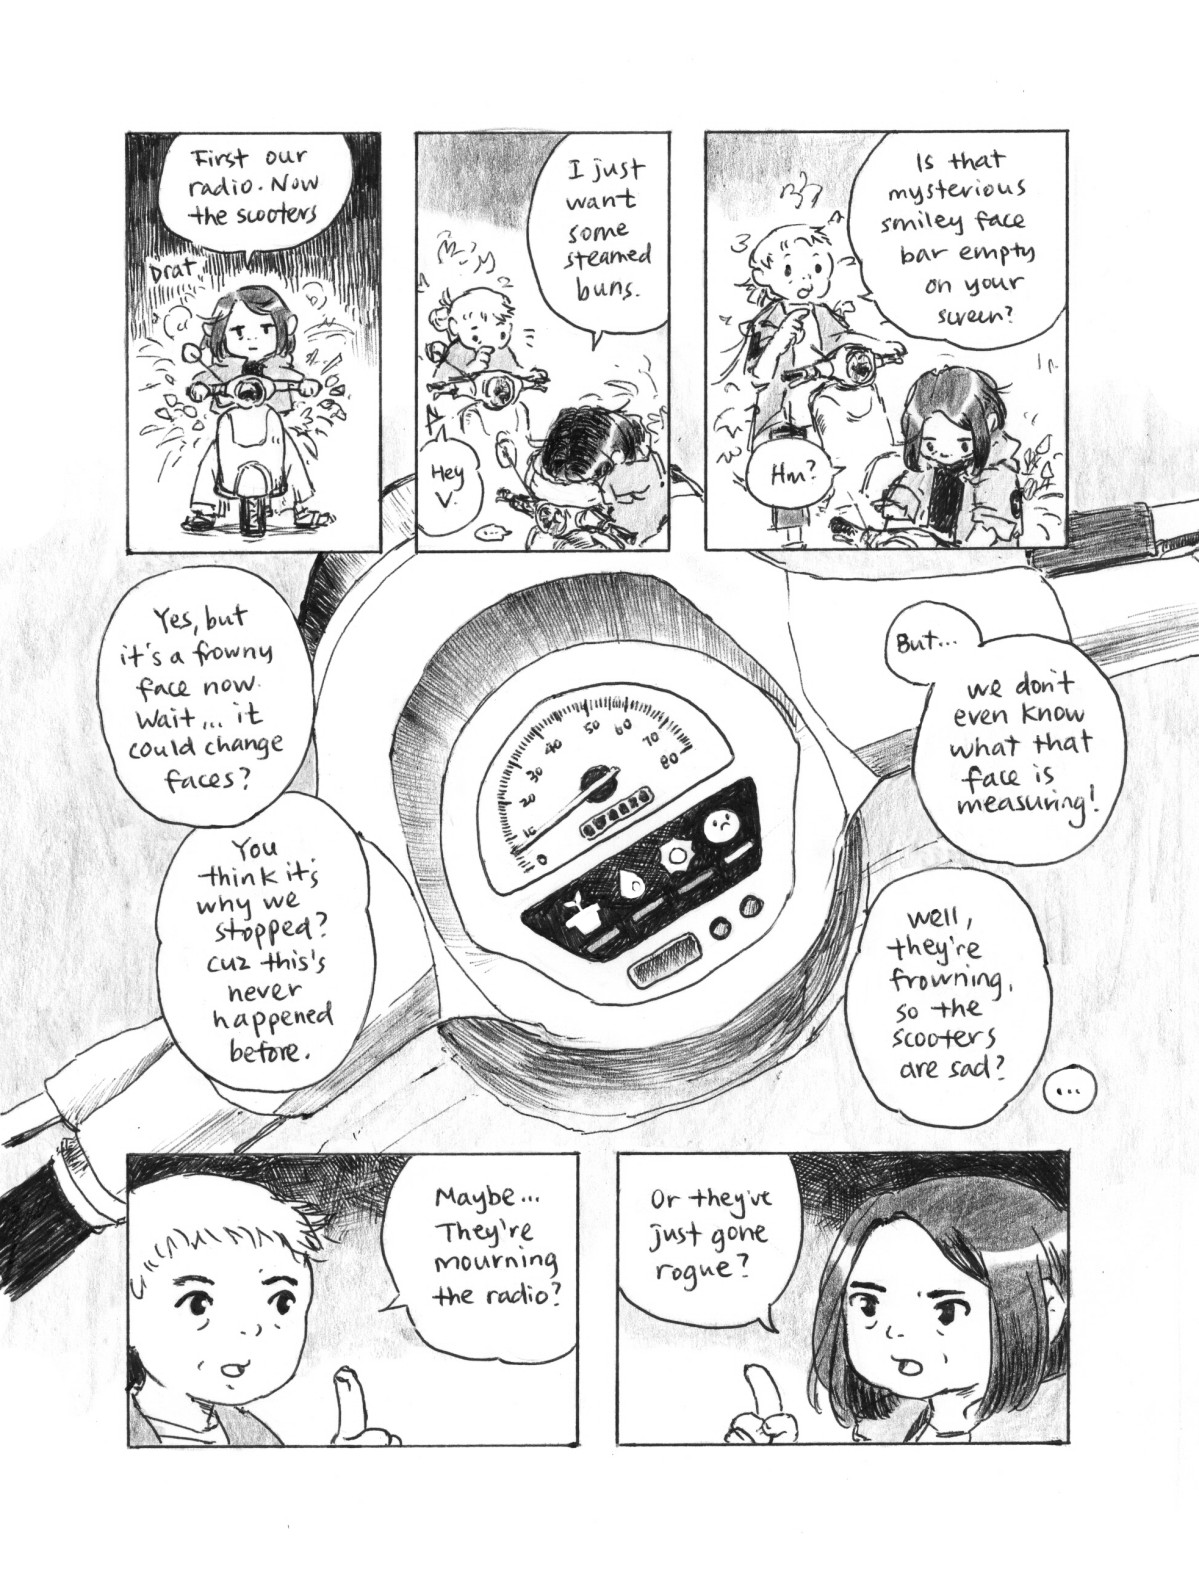 First our
radio. Now
the scooters
Drat.
I just
want
some
steamed
buns.
Hey
V.
...
Is that
mysterious
smiley face
bar empty
on your
screen?
Hm?
Yes, but
it's a frowny
face now.
Wait... it
could change
faces?
You
think it's
why we
stopped?
Cuz this's
never
happened
before.
But...
we don't
even know
what that
face is
measuring!
Well,
they're
frowning,
so the
scooters
are sad?
...
0
10
20
30
40
50
60
70
80
Maybe...
They're
mourning
the radio?
Or they've
just gone
rogue?